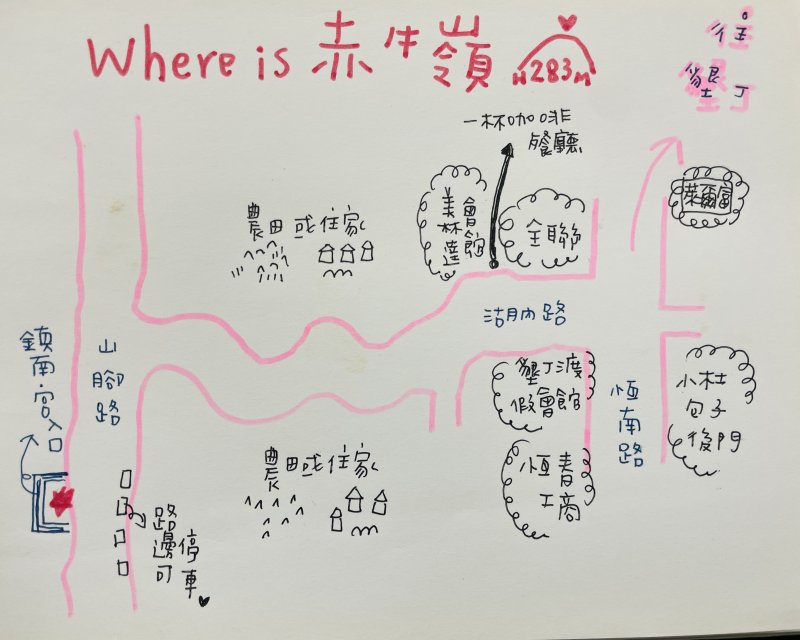 Where is 赤牛嶺
H283M
往
墾丁
一杯咖啡
餐廳
萊爾富
美林達
會館
全聯
農田或住家
湖內路
鎮南宮入口
山腳路
墾丁渡
假會館
恆南路
小杜
包子
後門
農田或住家
恆春
工商
路邊可
停車